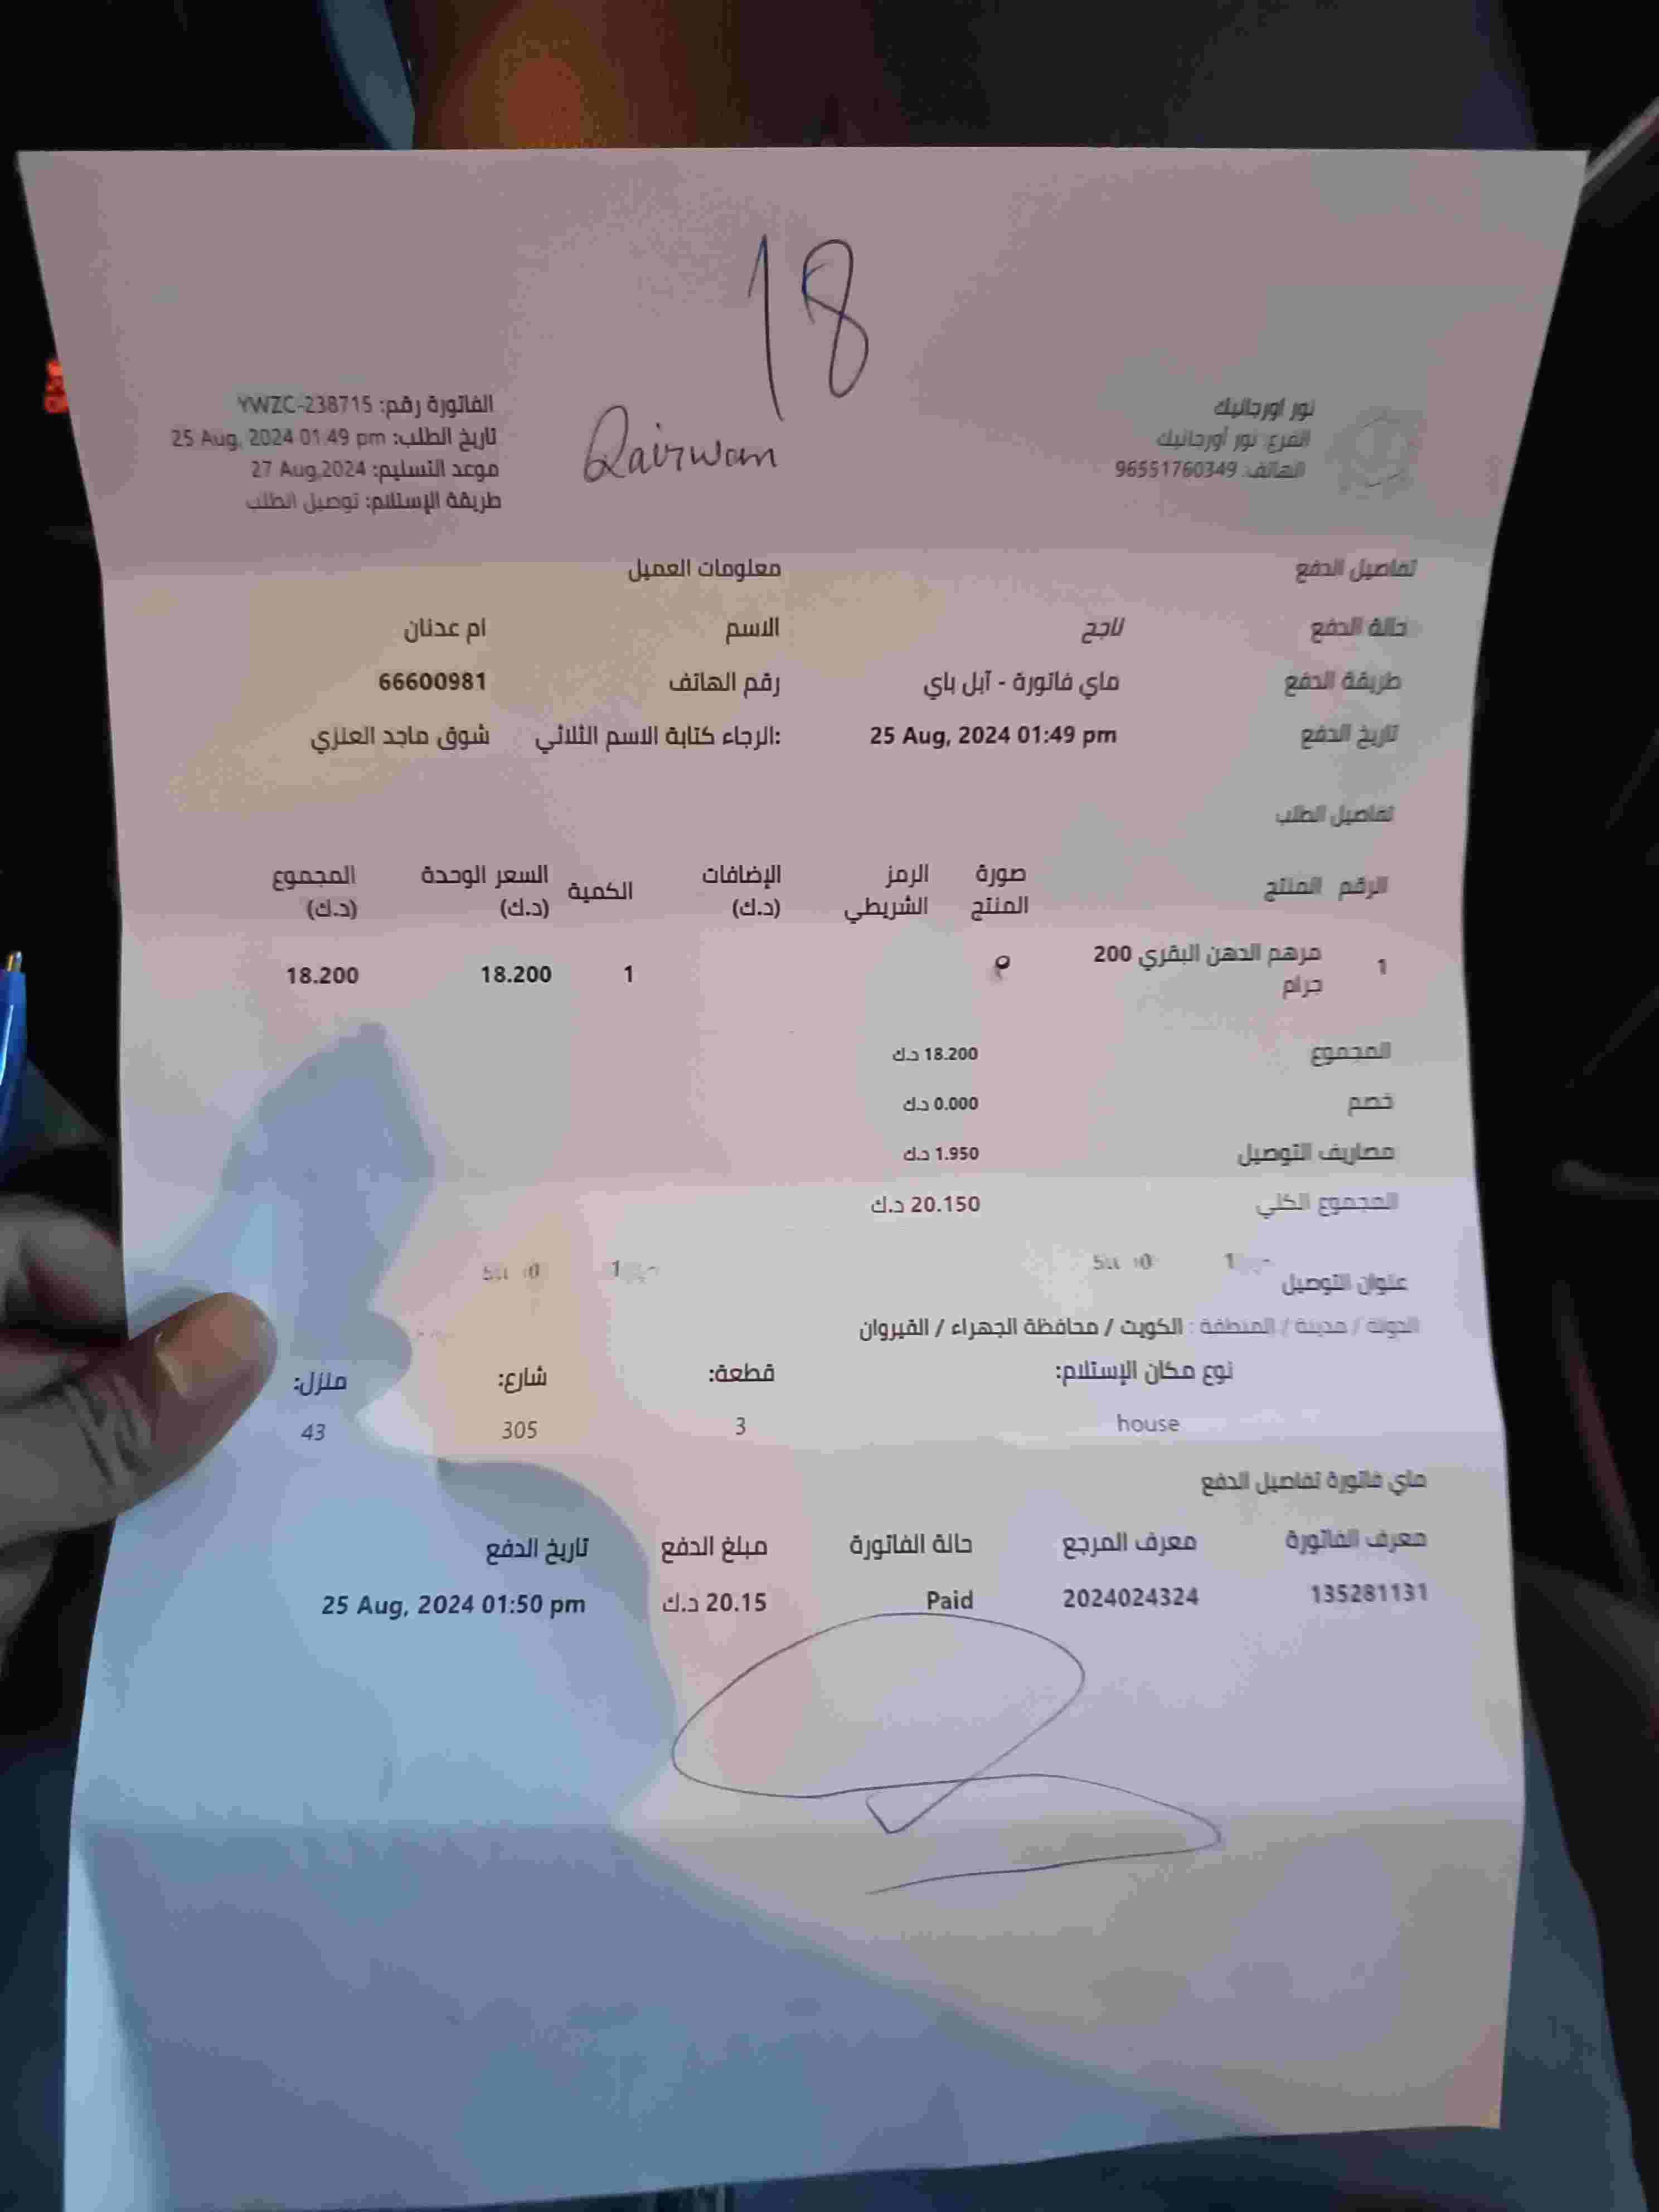 18
Qairwan
نور اورجانيك
الفرع: نور أورجانيك
الهاتف: 96551760349
الفاتورة رقم: YWZC-238715
تاريخ الطلب: 25 Aug, 2024 01:49 pm
موعد التسليم: 27 Aug,2024
طريقة الإستلام: توصيل الطلب
تفاصيل الدفع
حالة الدفع ناجح
طريقة الدفع ماي فاتورة - آبل باي
تاريخ الدفع 25 Aug, 2024 01:49 pm
معلومات العميل
الاسم ام عدنان
رقم الهاتف 66600981
الرجاء كتابة الاسم الثلاثي: شوق ماجد العنزي
تفاصيل الطلب
الرقم المنتج صورة المنتج الرمز الشريطي الإضافات (د.ك) الكمية السعر الوحدة (د.ك) المجموع (د.ك)
1 مرهم الدهن البقري 200 جرام 1 18.200 18.200
المجموع 18.200 د.ك
خصم 0.000 د.ك
مصاريف التوصيل 1.950 د.ك
المجموع الكلي 20.150 د.ك
عنوان التوصيل
الدولة / مدينة / المنطقة : الكويت / محافظة الجهراء / القيروان
نوع مكان الإستلام: قطعة: شارع: منزل:
house 3 305 43
ماي فاتورة تفاصيل الدفع
معرف الفاتورة معرف المرجع حالة الفاتورة مبلغ الدفع تاريخ الدفع
135281131 2024024324 Paid 20.15 د.ك 25 Aug, 2024 01:50 pm